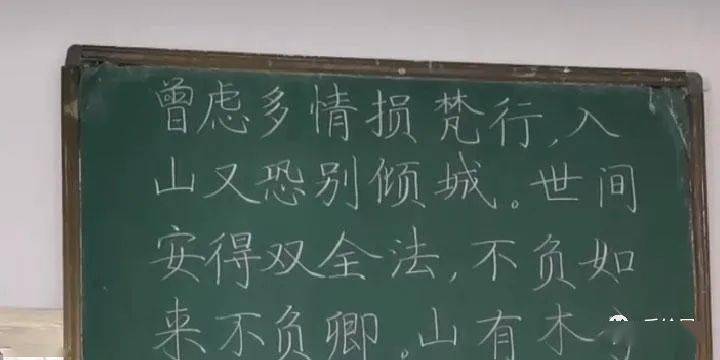 曾虑多情损梵行,入
山又恐别倾城。世间
安得双全法,不负如
来不负卿。山有木